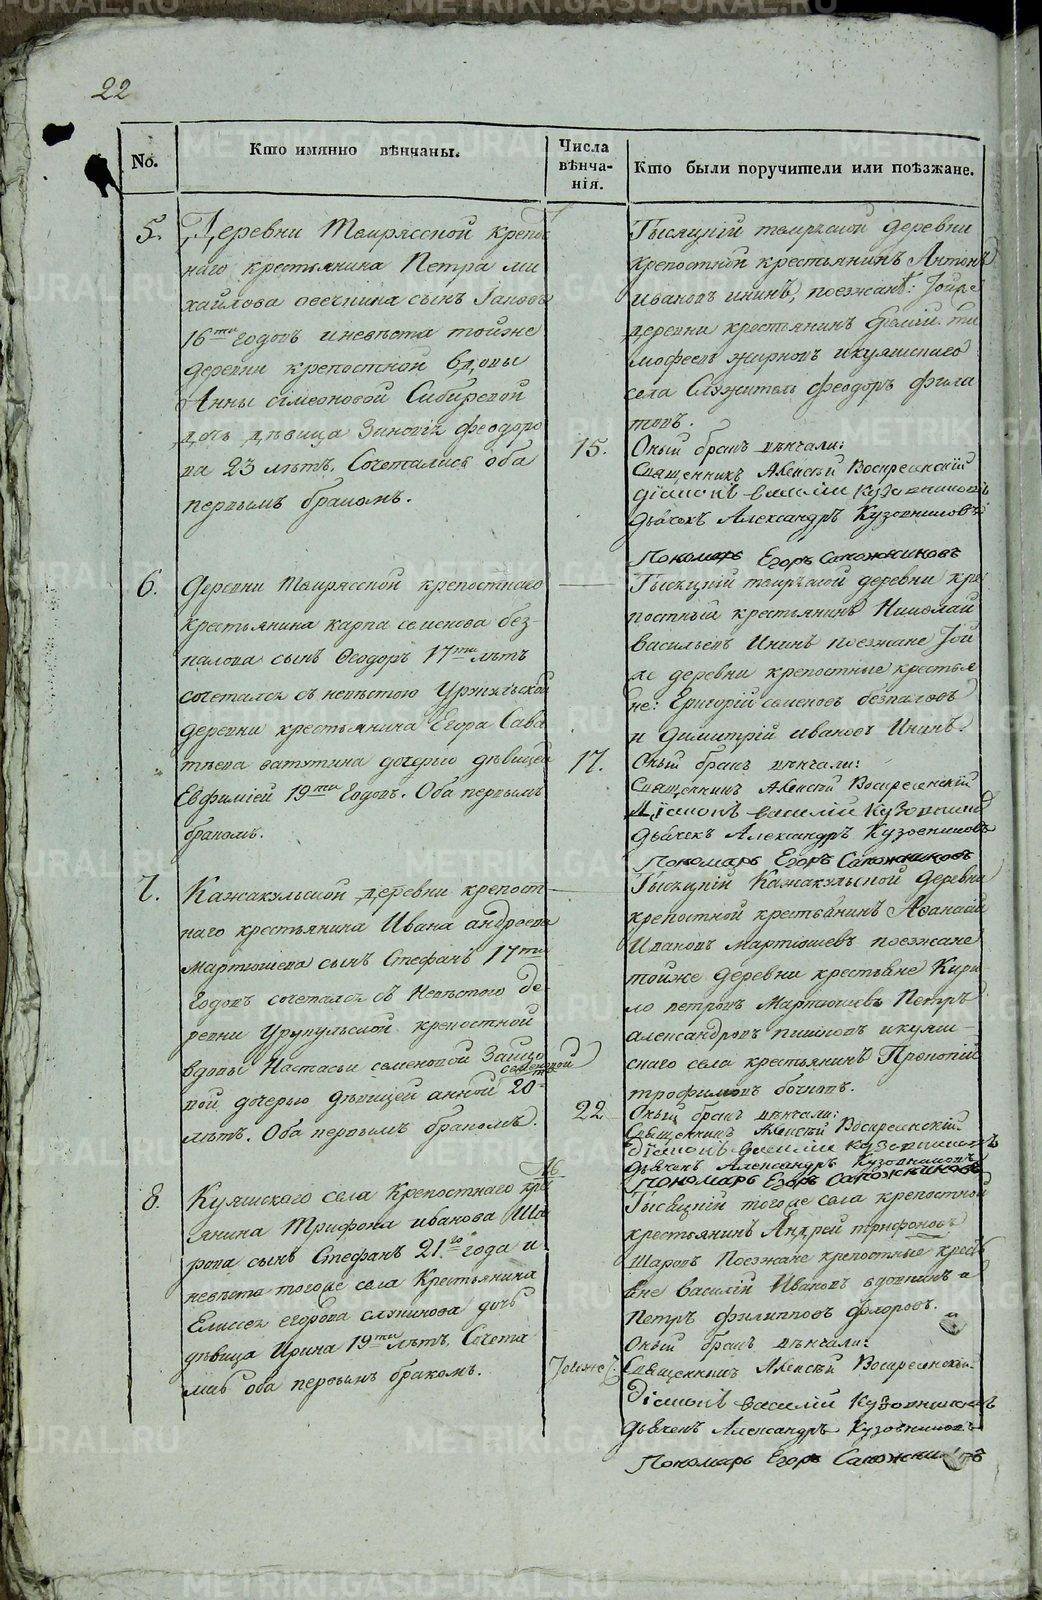 22
No.
Кто имянно вѣнчаны.
Числа
вѣнча-
нія.
Кто были поручители или поѣзжане.
5.
Деревни Темрясской крепос
наго крестьянина Петра ми
хайлова овечкина сынъ Іаковъ
16ти годовъ и невѣста тойже
деревни крепостной вдовы
Анны симеоновой Сибиревой
дочь дѣвица Зиновія феодоро
ва 23 лѣтъ, Сочетались оба
первымъ бракомъ.
15.
Тысяцкій темряской деревни
крепостной крестьянинъ Антонъ
ивановъ ининъ, поезжанѣ: Тойже
деревни крестьянинъ ти
мофеевъ жирновъ и куяшскаго
села Служитель феодоръ фила
товъ.
Оный бракъ вѣнчали:
Священникъ Алексѣй Воскресенскій
діаконъ василій Кузовниковъ
дьячокъ Александръ Кузовниковъ
Пономарь Егоръ Сапожниковъ
6.
Деревни Темрясской крепостнаго
крестьянина карпа семенова без-
палова сынъ Ѳеодоръ 17ти лѣтъ
сочетался съ невѣстою
деревни крестьянина Егора Сава
тѣева ватутина дочерью дѣвицей
Евфиміей 19ти годовъ. Оба первымъ
бракомъ.
17.
Тысяцкій темряской деревни кре
постный крестьянинъ Николай
васильевъ Ининъ поезжане Той
же деревни крепостные крестья
не: Григорій семеновъ безпаловъ
и Димитрій ивановъ Ининъ.
Оный бракъ вѣнчали:
Священникъ Алексѣй Воскресенскій
Діаконъ василій Кузовников
дьячекъ Александръ Кузовниковъ
Пономарь Егоръ Сапожниковъ
7.
Кажакульской деревни крепост
наго крестьянина Ивана андреева
мартюшева сынъ Стефанъ 17ти
годовъ сочетался съ невѣстою де
ревни Урукульской крепостной
вдовы Настасьи семеновой Зайцо
вой дочерью дѣвицей анной семеновой 20ти
лѣтъ. Оба первымъ бракомъ.
22
Тысяцкій Кажакульской деревни
крепостной крестьянинъ Аѳанасій
Ивановъ мартюшевъ поезжане
тойже деревни крестьяне Кири
ло петровъ Мартюшевъ Петръ
александровъ и куяш-
скаго села крестьянинъ Прокопій
трофимовъ бочковъ.
Оный бракъ вѣнчали:
Священникъ Алексѣй Воскресенскій
Діаконъ василій Кузовниковъ
дьячекъ Александръ Кузовниковъ
Пономарь Егоръ Сапожниковъ
8.
Куяшского села Крепостнаго кре
янина Трифона иванова Ша
рова сынъ Стефанъ 21го года и
невѣста тогоже села Крестьянина
Елисея егорова дочь
дѣвица Ирина 19ти лѣтъ, Сочета
лись оба первымъ бракомъ.
Тойже
Тысяцкій тогоже села крепостной
крестьянинъ Андрей трифоновъ
Шаровъ Поезжане крепостные крестья
яне василій Ивановъ вдовинъ и
Петръ филипповъ флоровъ.
Оный бракъ вѣнчали:
Священникъ Алексѣй Воскресенскій
Діаконъ василій Кузовниковъ
дьячекъ Александръ Кузовниковъ
Пономарь Егоръ Сапожниковъ
METRIKI.GASO-URAL.RU